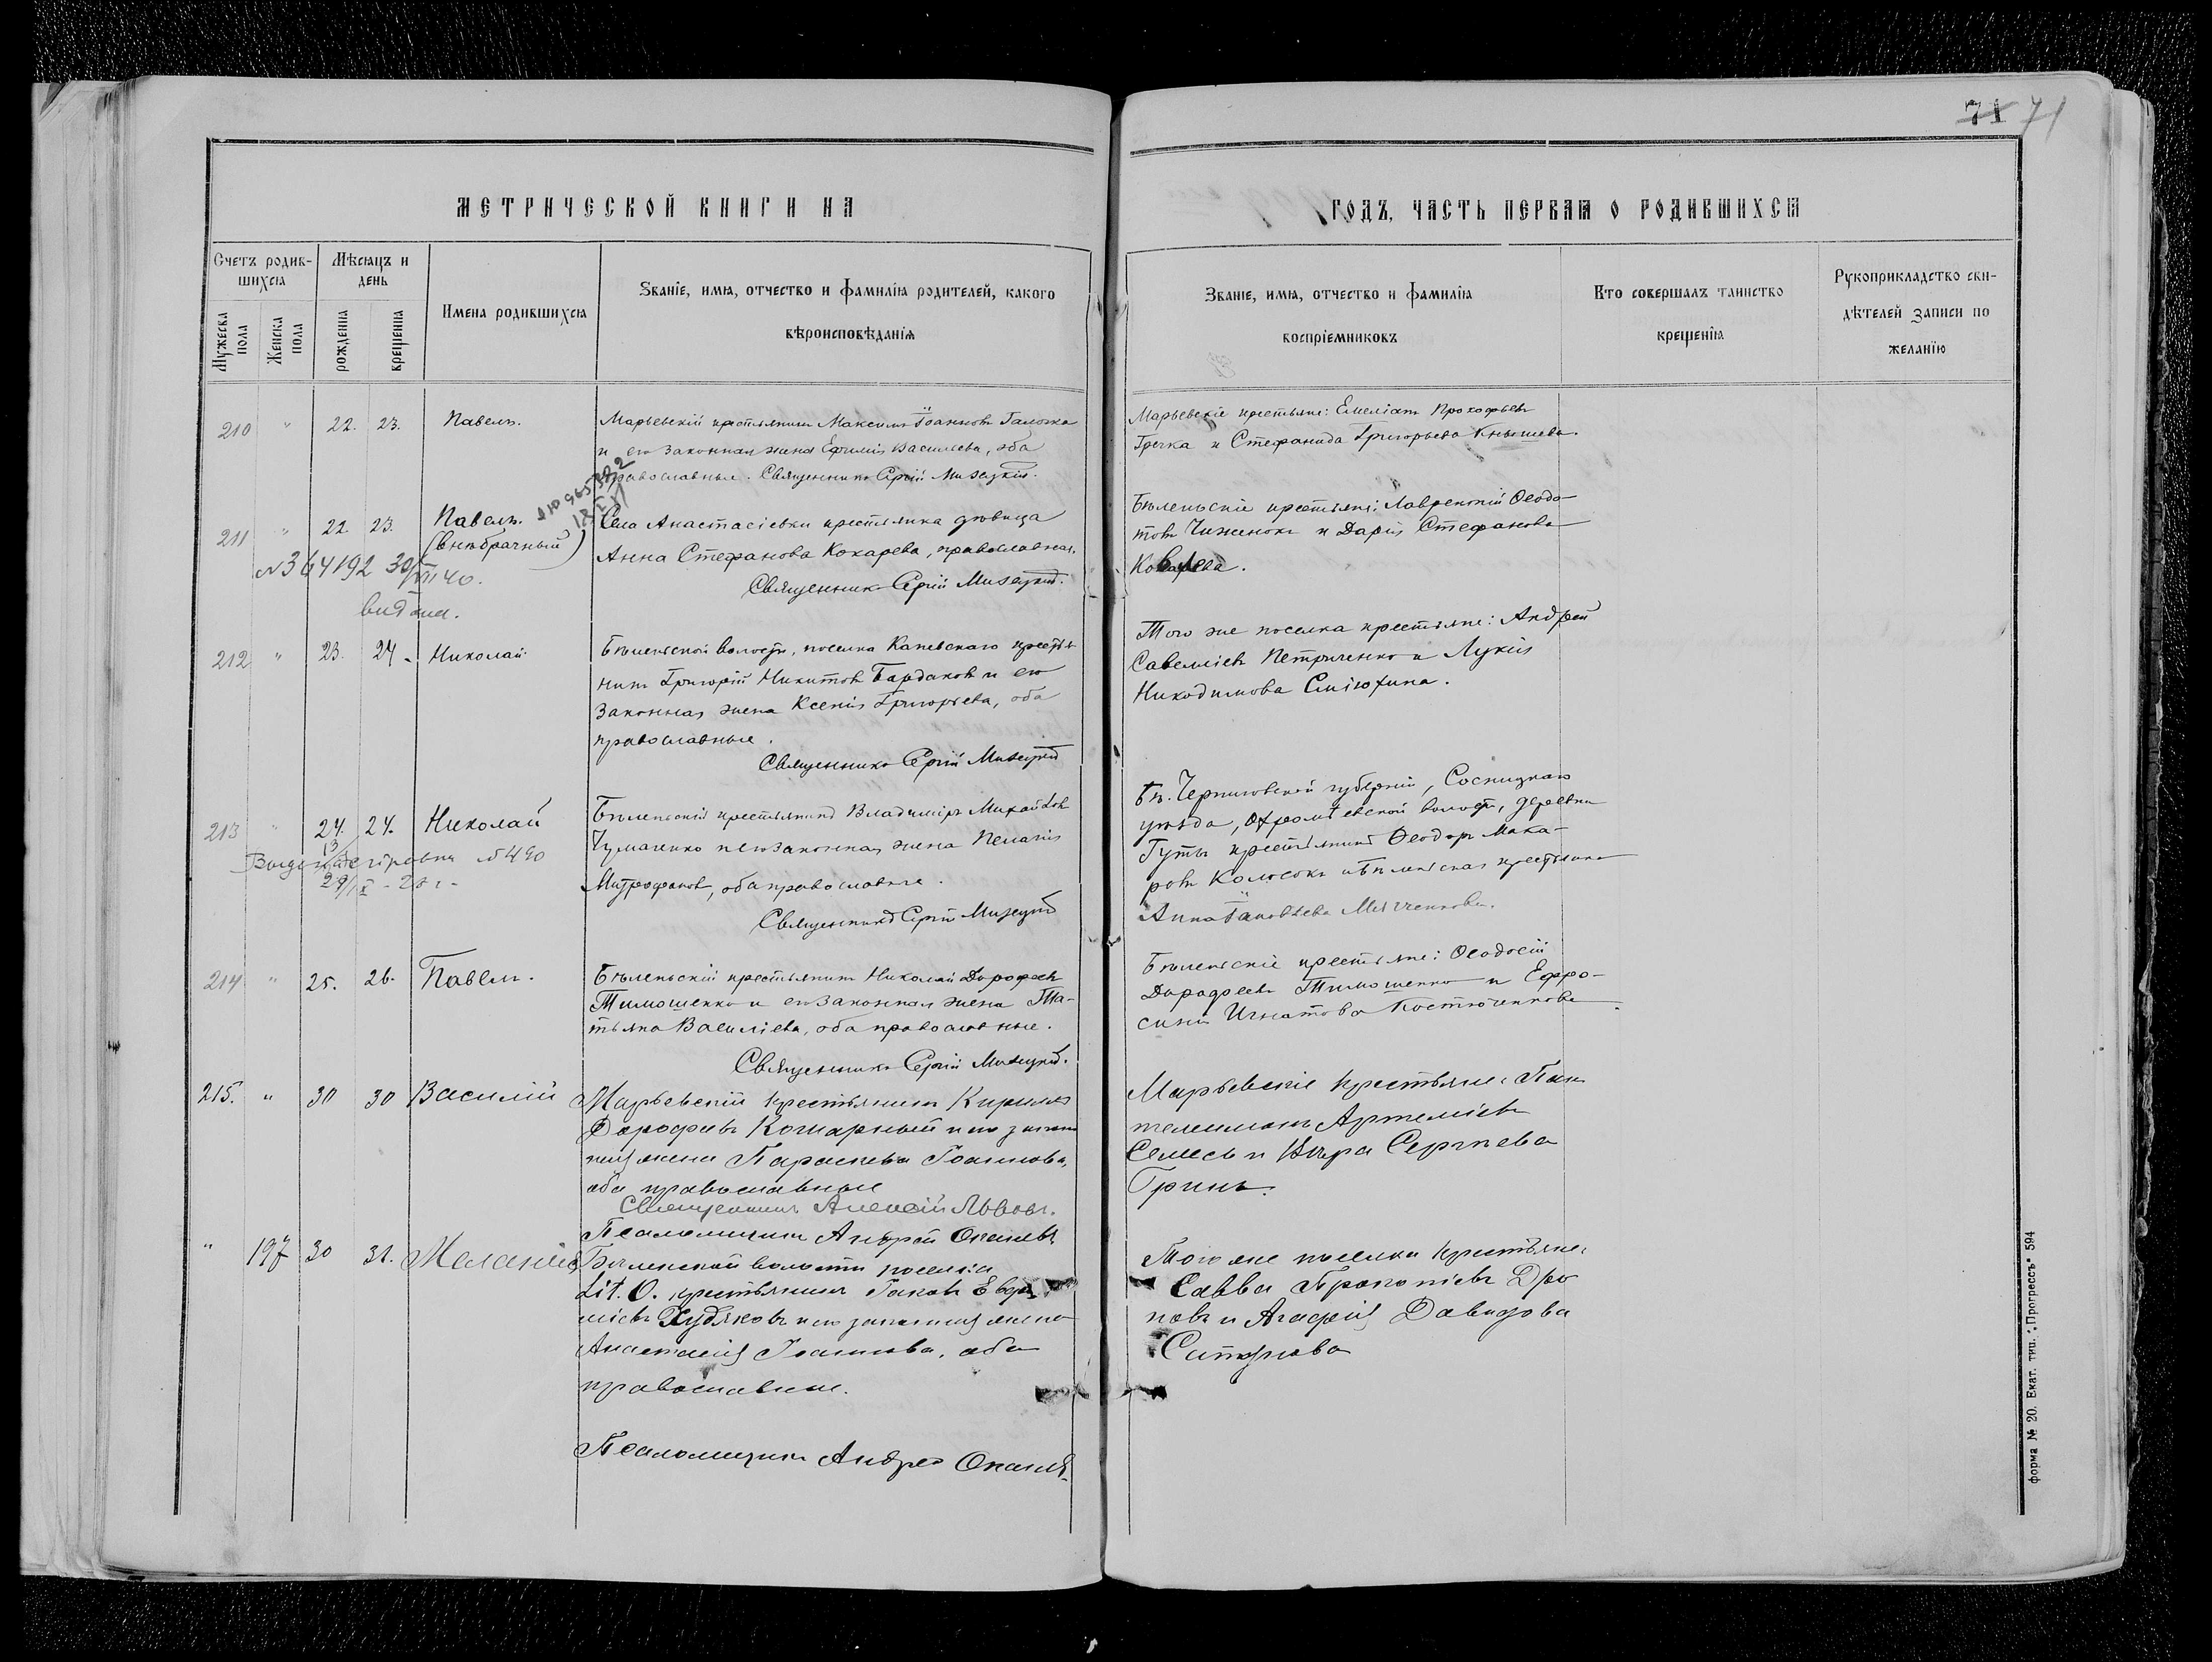 71 71
МЕТРИЧЕСКОЙ КНИГИ НА
ГОДЪ, ЧАСТЬ ПЕРВАЯ О РОДИВШИХСЯ
Счетъ родив-
шихся
Мужеска пола
Женска пола
Мѣсяцъ и
день
рожденія
крещенія
Имена родившихся
Званіе, имя, отчество и фамилія родителей, какого
вѣроисповѣданія
Званіе, имя, отчество и фамилія
воспріемниковъ
Кто совершалъ таинство
крещенія
Рукоприкладство сви-
дѣтелей записи по
желанію
210 " 22. 23. Павелъ.
Марьевскій крестьянинъ Максимъ Іоанновъ Галочка
и его законная жена Евфимія Василіева, оба
православные. Священникъ Сергій Мизецкій.
Марьевскіе крестьяне: Емеліанъ Прокофьевъ
Гречка и Стефанида Григорьева Кнышева.
211 " 22 23. Павелъ.
(внѣбрачный)
№ 364192 30/VII 40.
видана.
Села Анастасіевки крестьянка дѣвица
Анна Стефанова Кокарева, православная.
Священникъ Сергій Мизецкій.
Бѣленьскіе крестьяне: Лаврентій Ѳеодо-
товъ Чиженокъ и Дарія Стефанова
212 " 23. 24. Николай.
Бѣленьской волости, поселка Каневскаго крестья-
нинъ Григорій Никитовъ Бардаковъ и его
законная жена Ксенія Григорьева, оба
православные.
Священникъ Сергій Мизецкій
Того же поселка крестьяне: Андрей
Савеліевъ Петриченко и Лукія
Никодимова Смілохина.
213 " 24. 24. Николай
№ 490
Бѣленьскій крестьянинъ Владиміръ Михайловъ
Чумаченко и его законная жена Пелагія
Митрофанова, оба православные.
Священникъ Сергій Мизецкій
Черниговской губерніи, Сосницкаго
уѣзда, Охромѣевской волости, деревни
Гуты крестьянинъ Ѳеодоръ Мака-
ровъ Колосокъ и Бѣленьская крестьянка
Анна Іаковлева
214 " 25. 26. Павелъ.
Бѣленьскій крестьянинъ Николай Дорофеевъ
Тимошенко и его законная жена Та-
тьяна Василіева, оба православные.
Священникъ Сергій Мизецкій.
Бѣленьскіе крестьяне: Ѳеодосій
Дорофеевъ Тимошенко и Евфро-
синія Игнатова Костюченкова.
215. " 30 30 Василій
Марьевскій крестьянинъ Кириллъ
Дорофеевъ Кошарный и его закон-
ная жена Параскева Іоаннова,
оба православные
Священникъ Алексій Львовъ.
Псаломщикъ Андрей
Марьевскіе крестьяне: Пан-
телеимонъ Артеміевъ
Семесь и Вѣра Сергіева
Гринь.
" 197 30 31. Меланія
Бѣленской волости поселка
Lit. O. крестьянинъ Іаковъ Евфи-
міевъ Худяковъ и его законная жена
Анастасія Іоаннова, оба
православные.
Псаломщикъ Андрей
Того же поселка крестьяне:
Савва Прокопіевъ Дро-
новъ и Агафія Давидова
форма № 20. Екат. тип. „Прогрессъ" 594